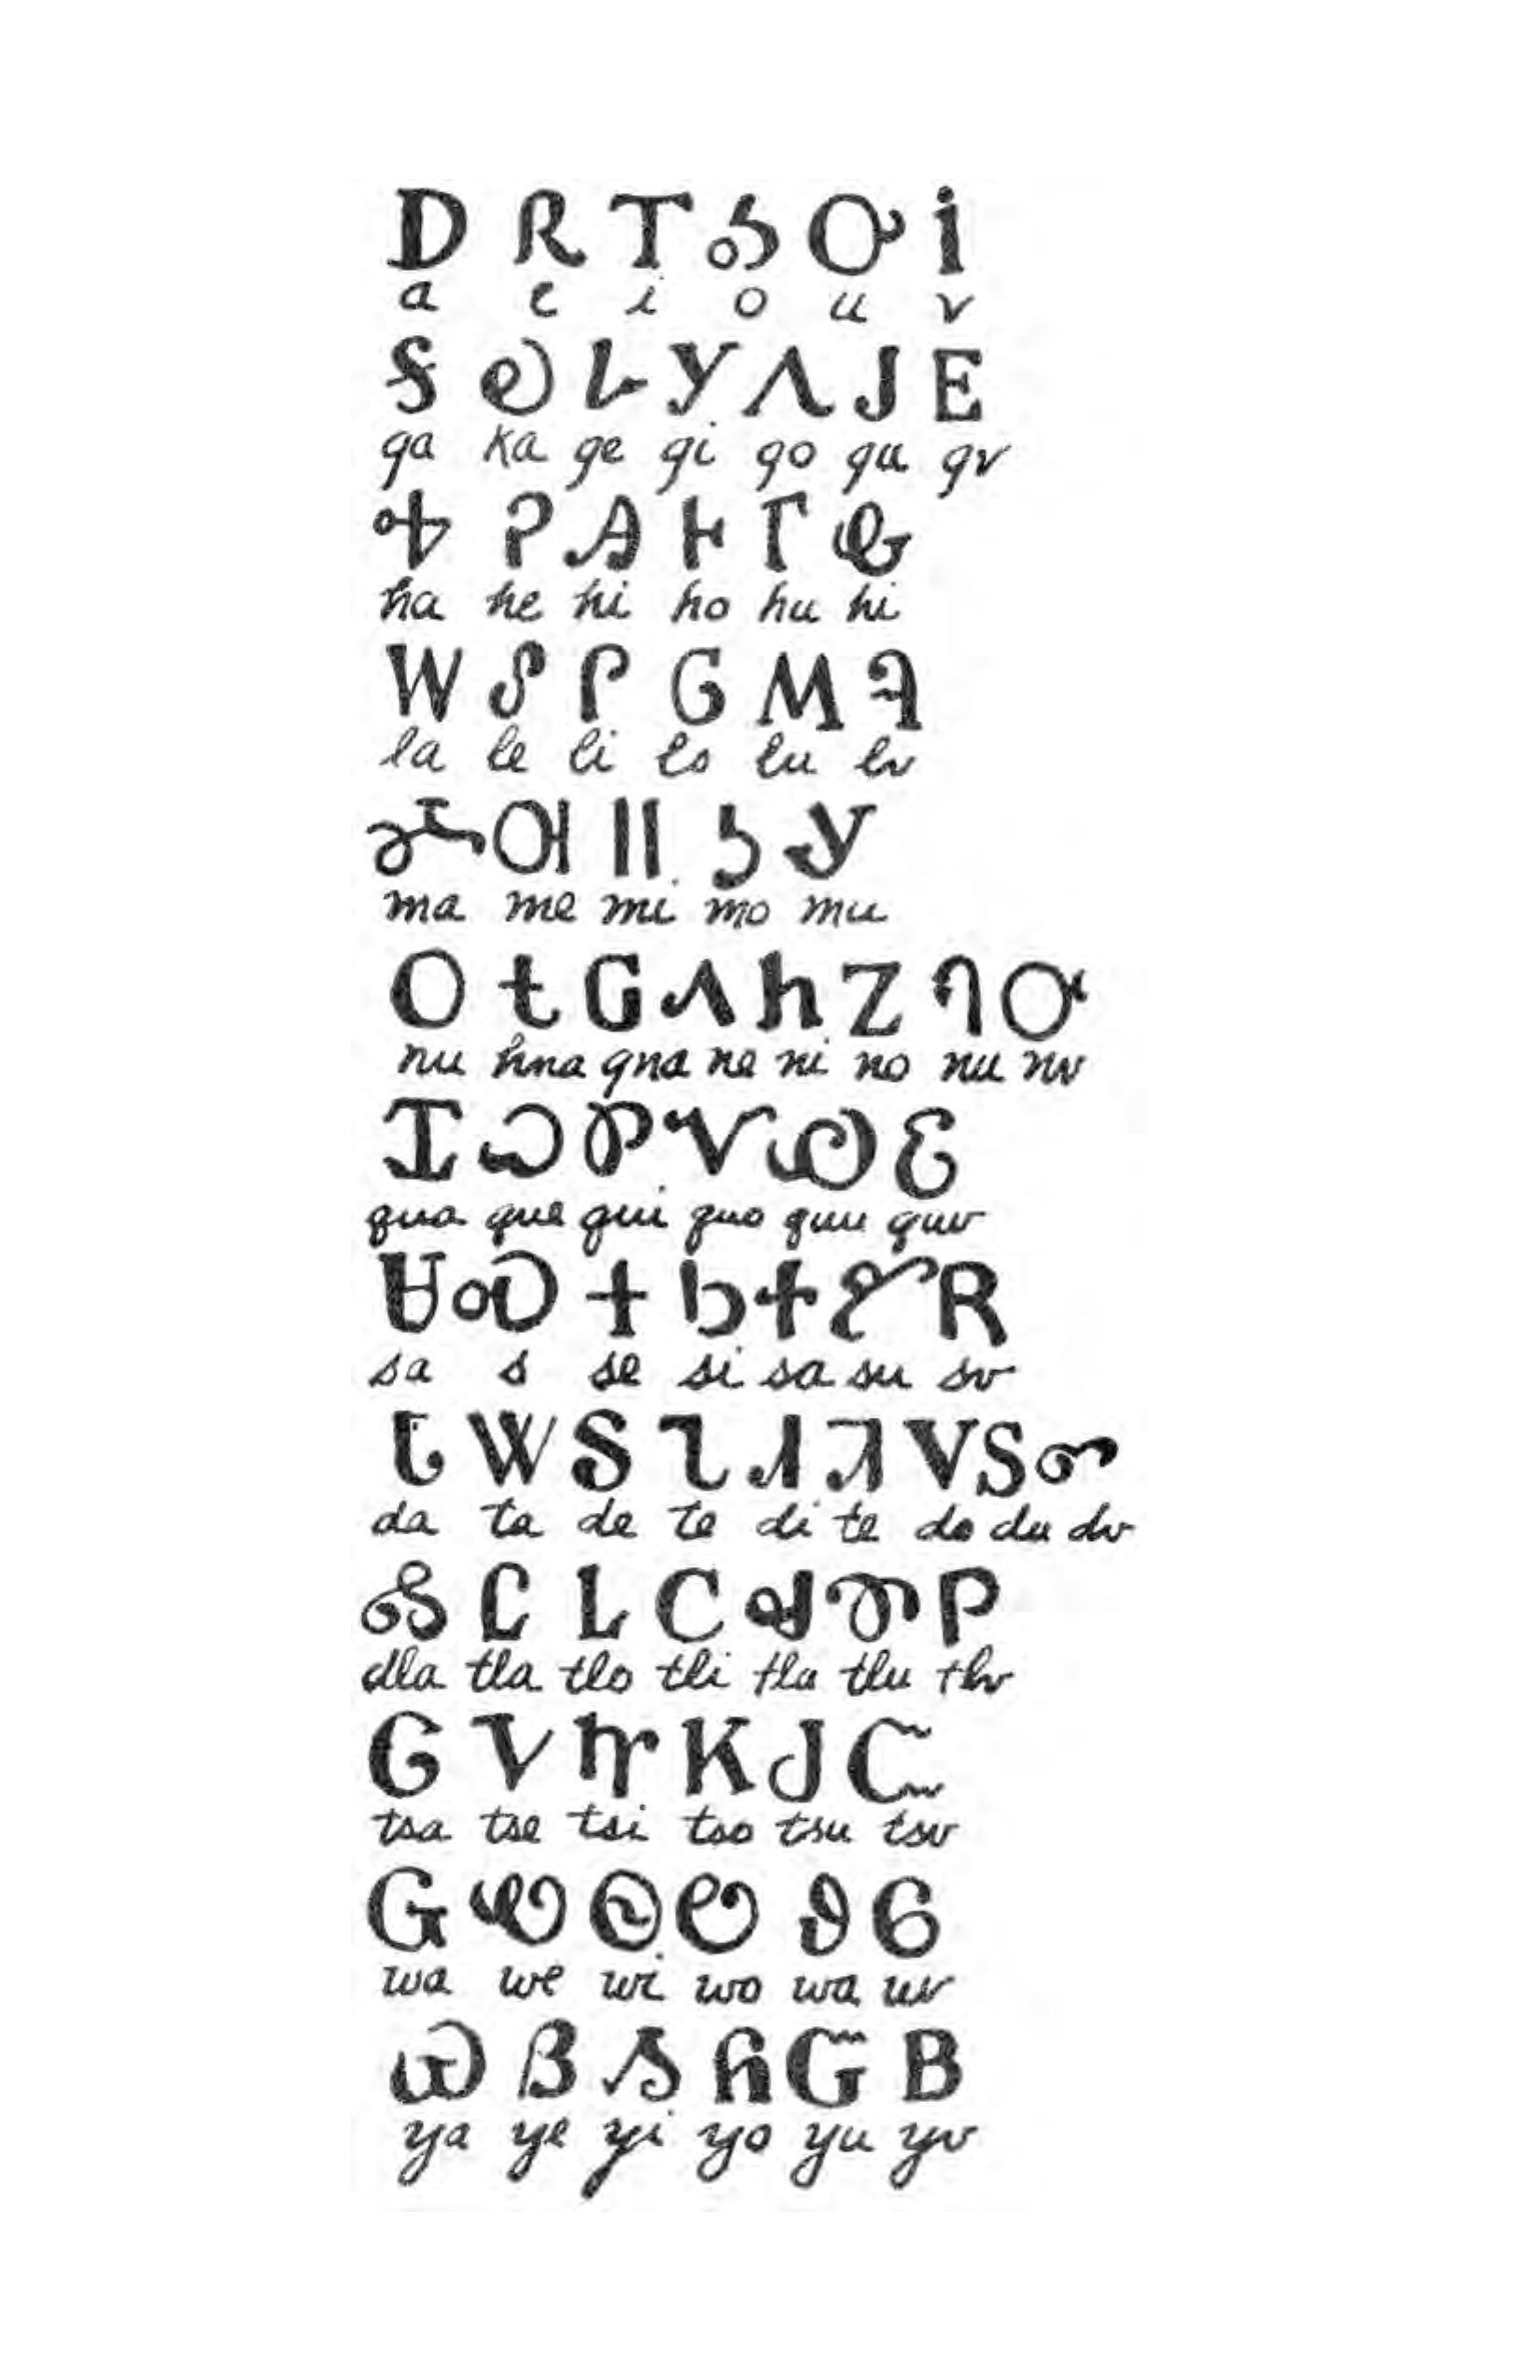 Ꭰ Ꭱ Ꭲ Ꭳ Ꭴ Ꭵ
a e i o u v
Ꭶ Ꭷ Ꭸ Ꭹ Ꭺ Ꭻ Ꭼ
ga ka ge gi go gu gv
Ꭽ Ꭾ Ꭿ Ꮀ Ꮁ Ꮂ
ha he hi ho hu hi
Ꮃ Ꮄ Ꮅ Ꮆ Ꮇ Ꮈ
la le li lo lu lv
Ꮉ Ꮊ Ꮋ Ꮌ Ꮍ
ma me mi mo mu
Ꮎ Ꮏ Ꮐ Ꮑ Ꮒ Ꮓ Ꮔ Ꮕ
nu hna gna ne ni no nu nv
Ꮖ Ꮗ Ꮘ Ꮙ Ꮚ Ꮛ
qua que qui quo quu quv
Ꮜ Ꮝ Ꮞ Ꮟ Ꮠ Ꮡ Ꮢ
sa s se si sa su sv
Ꮣ Ꮤ Ꮥ Ꮦ Ꮧ Ꮨ Ꮩ Ꮪ Ꮫ
da ta de te di te do du dv
Ꮬ Ꮭ Ꮮ Ꮯ Ꮰ Ꮱ Ꮲ
dla tla tlo tli tla tlu tlv
Ꮳ Ꮴ Ꮵ Ꮶ Ꮷ Ꮸ
tsa tse tsi tso tsu tsv
Ꮹ Ꮺ Ꮻ Ꮼ Ꮽ Ꮾ
wa we wi wo wa wv
Ꮿ Ᏸ Ᏹ Ᏺ Ᏻ Ᏼ
ya ye yi yo yu yv